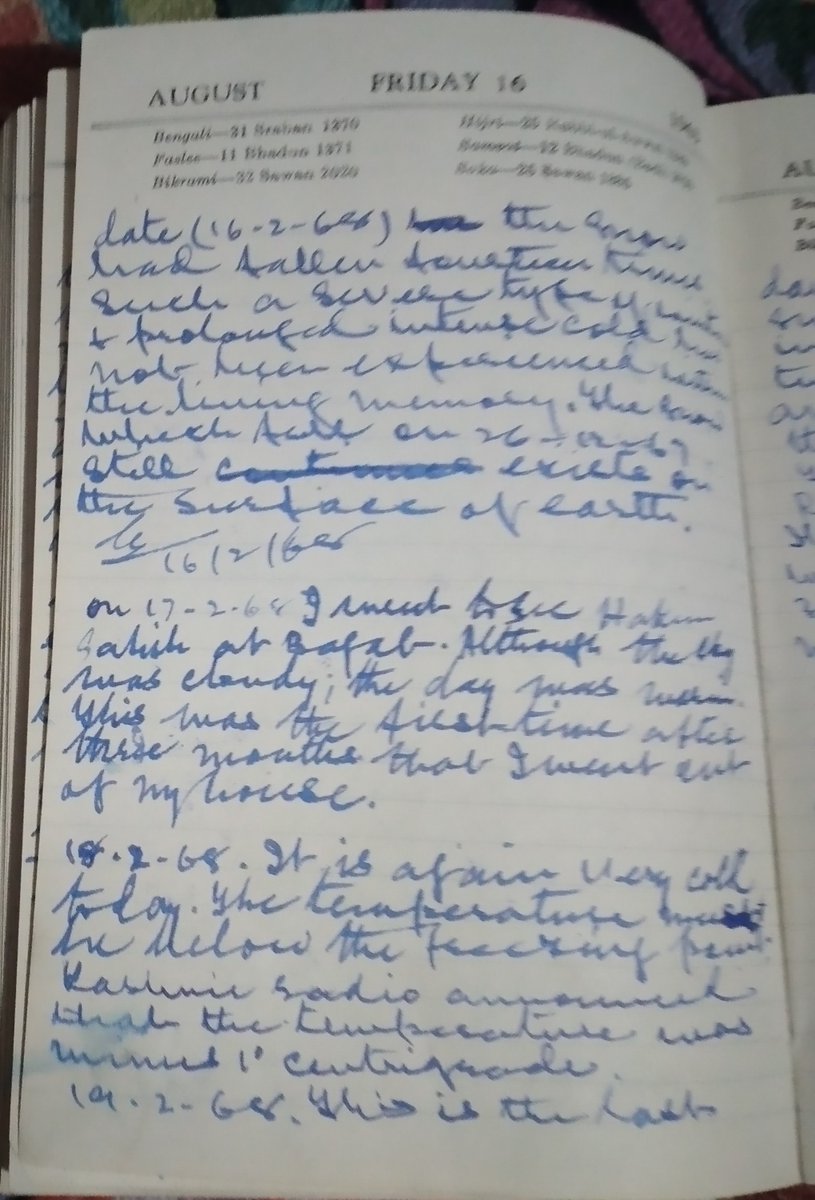 AUGUST FRIDAY 16
Bengali—31 Sraban 1370
Faslee—11 Bhadon 1371
Bikrami—32 Sawan 2020
date (16-2-68) the snow
had fallen fourteen times
such a severe type of winter
& prolonged intense cold has
not been experienced within
the living memory. The snow
which fell on 26-12-67
still continues exists on
the surface of earth.
16/2/68
on 17-2-68 I went to see Hakim
at Rafab. Although the sky
was cloudy; the day was warm.
This was the first time after
three months that I went out
of my house.
18.2.68. It is again very cold
today. The temperature must
be below the freezing point.
Kashmir radio announced
that the temperature was
minus 1° centigrade.
19.2.68. This is the last